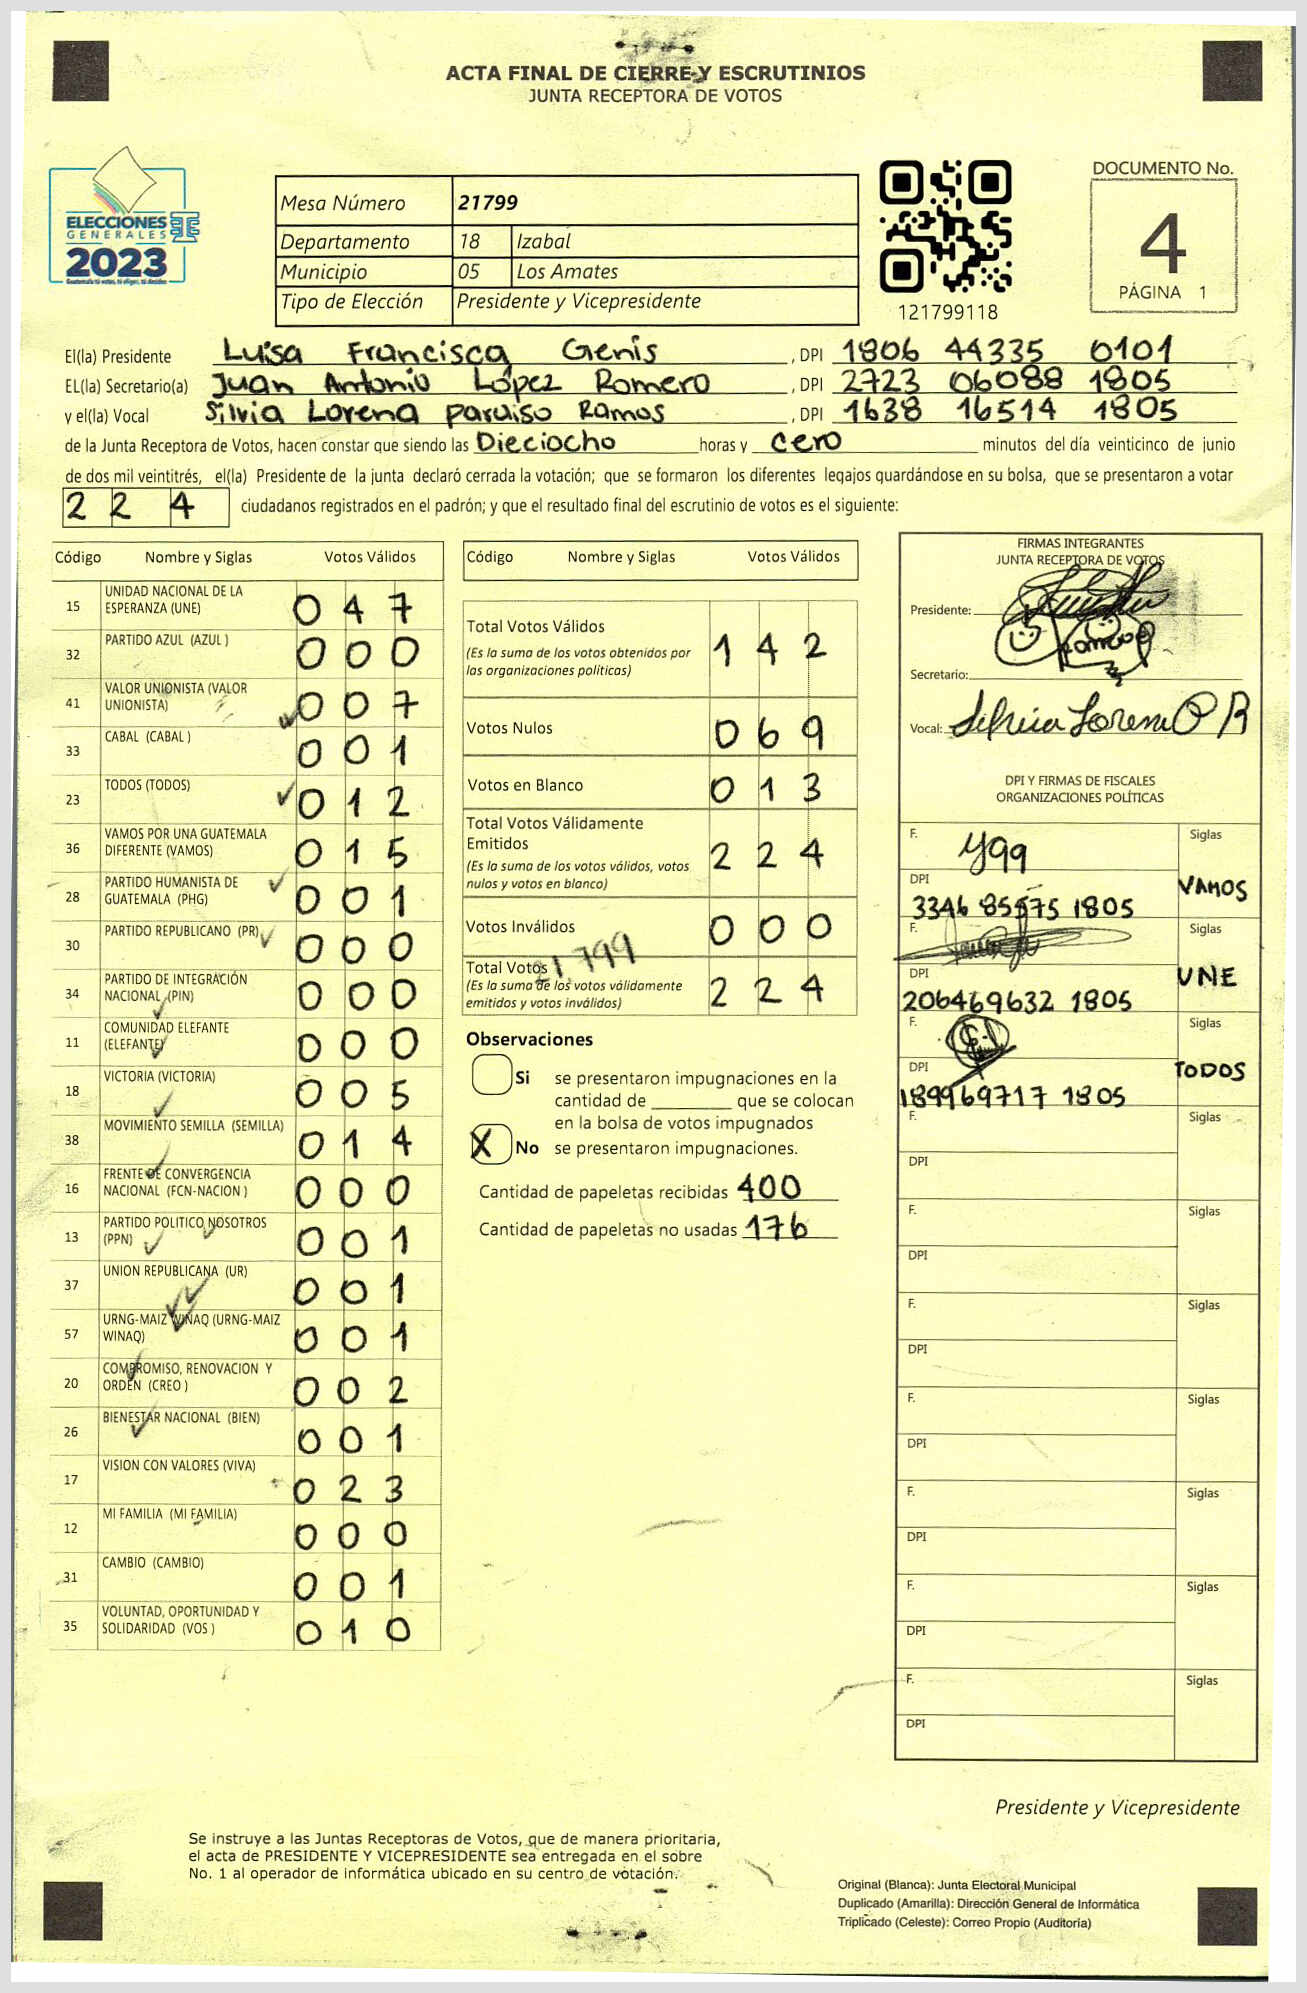 ACTA FINAL DE CIERRE Y ESCRUTINIOS
JUNTA RECEPTORA DE VOTOS
ELECCIONES
GENERALES
2023
Mesa Número 21799
Departamento 18 Izabal
Municipio 05 Los Amates
Tipo de Elección Presidente y Vicepresidente
121799118
DOCUMENTO No.
4
PÁGINA 1
El(la) Presidente Luisa Francisca Genis , DPI 1806 44335 0101
EL(la) Secretario(a) Juan Antonio López Romero , DPI 2723 06088 1805
y el(la) Vocal Silvia Lorena paraiso Ramos , DPI 1638 16514 1805
de la Junta Receptora de Votos, hacen constar que siendo las Dieciocho horas y cero minutos del día veinticinco de junio
de dos mil veintitrés, el(la) Presidente de la junta declaró cerrada la votación; que se formaron los diferentes legajos guardándose en su bolsa, que se presentaron a votar
224 ciudadanos registrados en el padrón; y que el resultado final del escrutinio de votos es el siguiente:
Código Nombre y Siglas Votos Válidos
15 UNIDAD NACIONAL DE LA
ESPERANZA (UNE) 047
32 PARTIDO AZUL (AZUL ) 000
41 VALOR UNIONISTA (VALOR
UNIONISTA) 007
33 CABAL (CABAL ) 001
23 TODOS (TODOS) 012
36 VAMOS POR UNA GUATEMALA
DIFERENTE (VAMOS) 015
28 PARTIDO HUMANISTA DE
GUATEMALA (PHG) 001
30 PARTIDO REPUBLICANO (PR) 000
34 PARTIDO DE INTEGRACIÓN
NACIONAL (PIN) 000
11 COMUNIDAD ELEFANTE
(ELEFANTE) 000
18 VICTORIA (VICTORIA) 005
38 MOVIMIENTO SEMILLA (SEMILLA) 014
16 FRENTE DE CONVERGENCIA
NACIONAL (FCN-NACION ) 000
13 PARTIDO POLITICO NOSOTROS
(PPN) 001
37 UNION REPUBLICANA (UR) 001
57 URNG-MAIZ WINAQ (URNG-MAIZ
WINAQ) 001
20 COMPROMISO, RENOVACION Y
ORDEN (CREO ) 002
26 BIENESTAR NACIONAL (BIEN) 001
17 VISION CON VALORES (VIVA) 023
12 MI FAMILIA (MI FAMILIA) 000
31 CAMBIO (CAMBIO) 001
35 VOLUNTAD, OPORTUNIDAD Y
SOLIDARIDAD (VOS ) 010
Código Nombre y Siglas Votos Válidos
Total Votos Válidos 142
(Es la suma de los votos obtenidos por
las organizaciones políticas)
Votos Nulos 069
Votos en Blanco 013
Total Votos Válidamente
Emitidos 224
(Es la suma de los votos válidos, votos
nulos y votos en blanco)
Votos Inválidos 000
21,799
Total Votos 224
(Es la suma de los votos válidamente
emitidos y votos inválidos)
Observaciones
Si se presentaron impugnaciones en la
cantidad de ________ que se colocan
en la bolsa de votos impugnados
X No se presentaron impugnaciones.
Cantidad de papeletas recibidas 400
Cantidad de papeletas no usadas 176
FIRMAS INTEGRANTES
JUNTA RECEPTORA DE VOTOS
Presidente:
Secretario:
Vocal: Silvia Lorena P R
DPI Y FIRMAS DE FISCALES
ORGANIZACIONES POLÍTICAS
F. Siglas
DPI VAMOS
3346 85575 1805
F. Siglas
DPI UNE
206469632 1805
F. Siglas
DPI TODOS
189969717 1805
F. Siglas
DPI
F. Siglas
DPI
F. Siglas
DPI
F. Siglas
DPI
F. Siglas
DPI
F. Siglas
DPI
F. Siglas
DPI
Presidente y Vicepresidente
Se instruye a las Juntas Receptoras de Votos, que de manera prioritaria,
el acta de PRESIDENTE Y VICEPRESIDENTE sea entregada en el sobre
No. 1 al operador de informática ubicado en su centro de votación.
Original (Blanca): Junta Electoral Municipal
Duplicado (Amarilla): Dirección General de Informática
Triplicado (Celeste): Correo Propio (Auditoría)